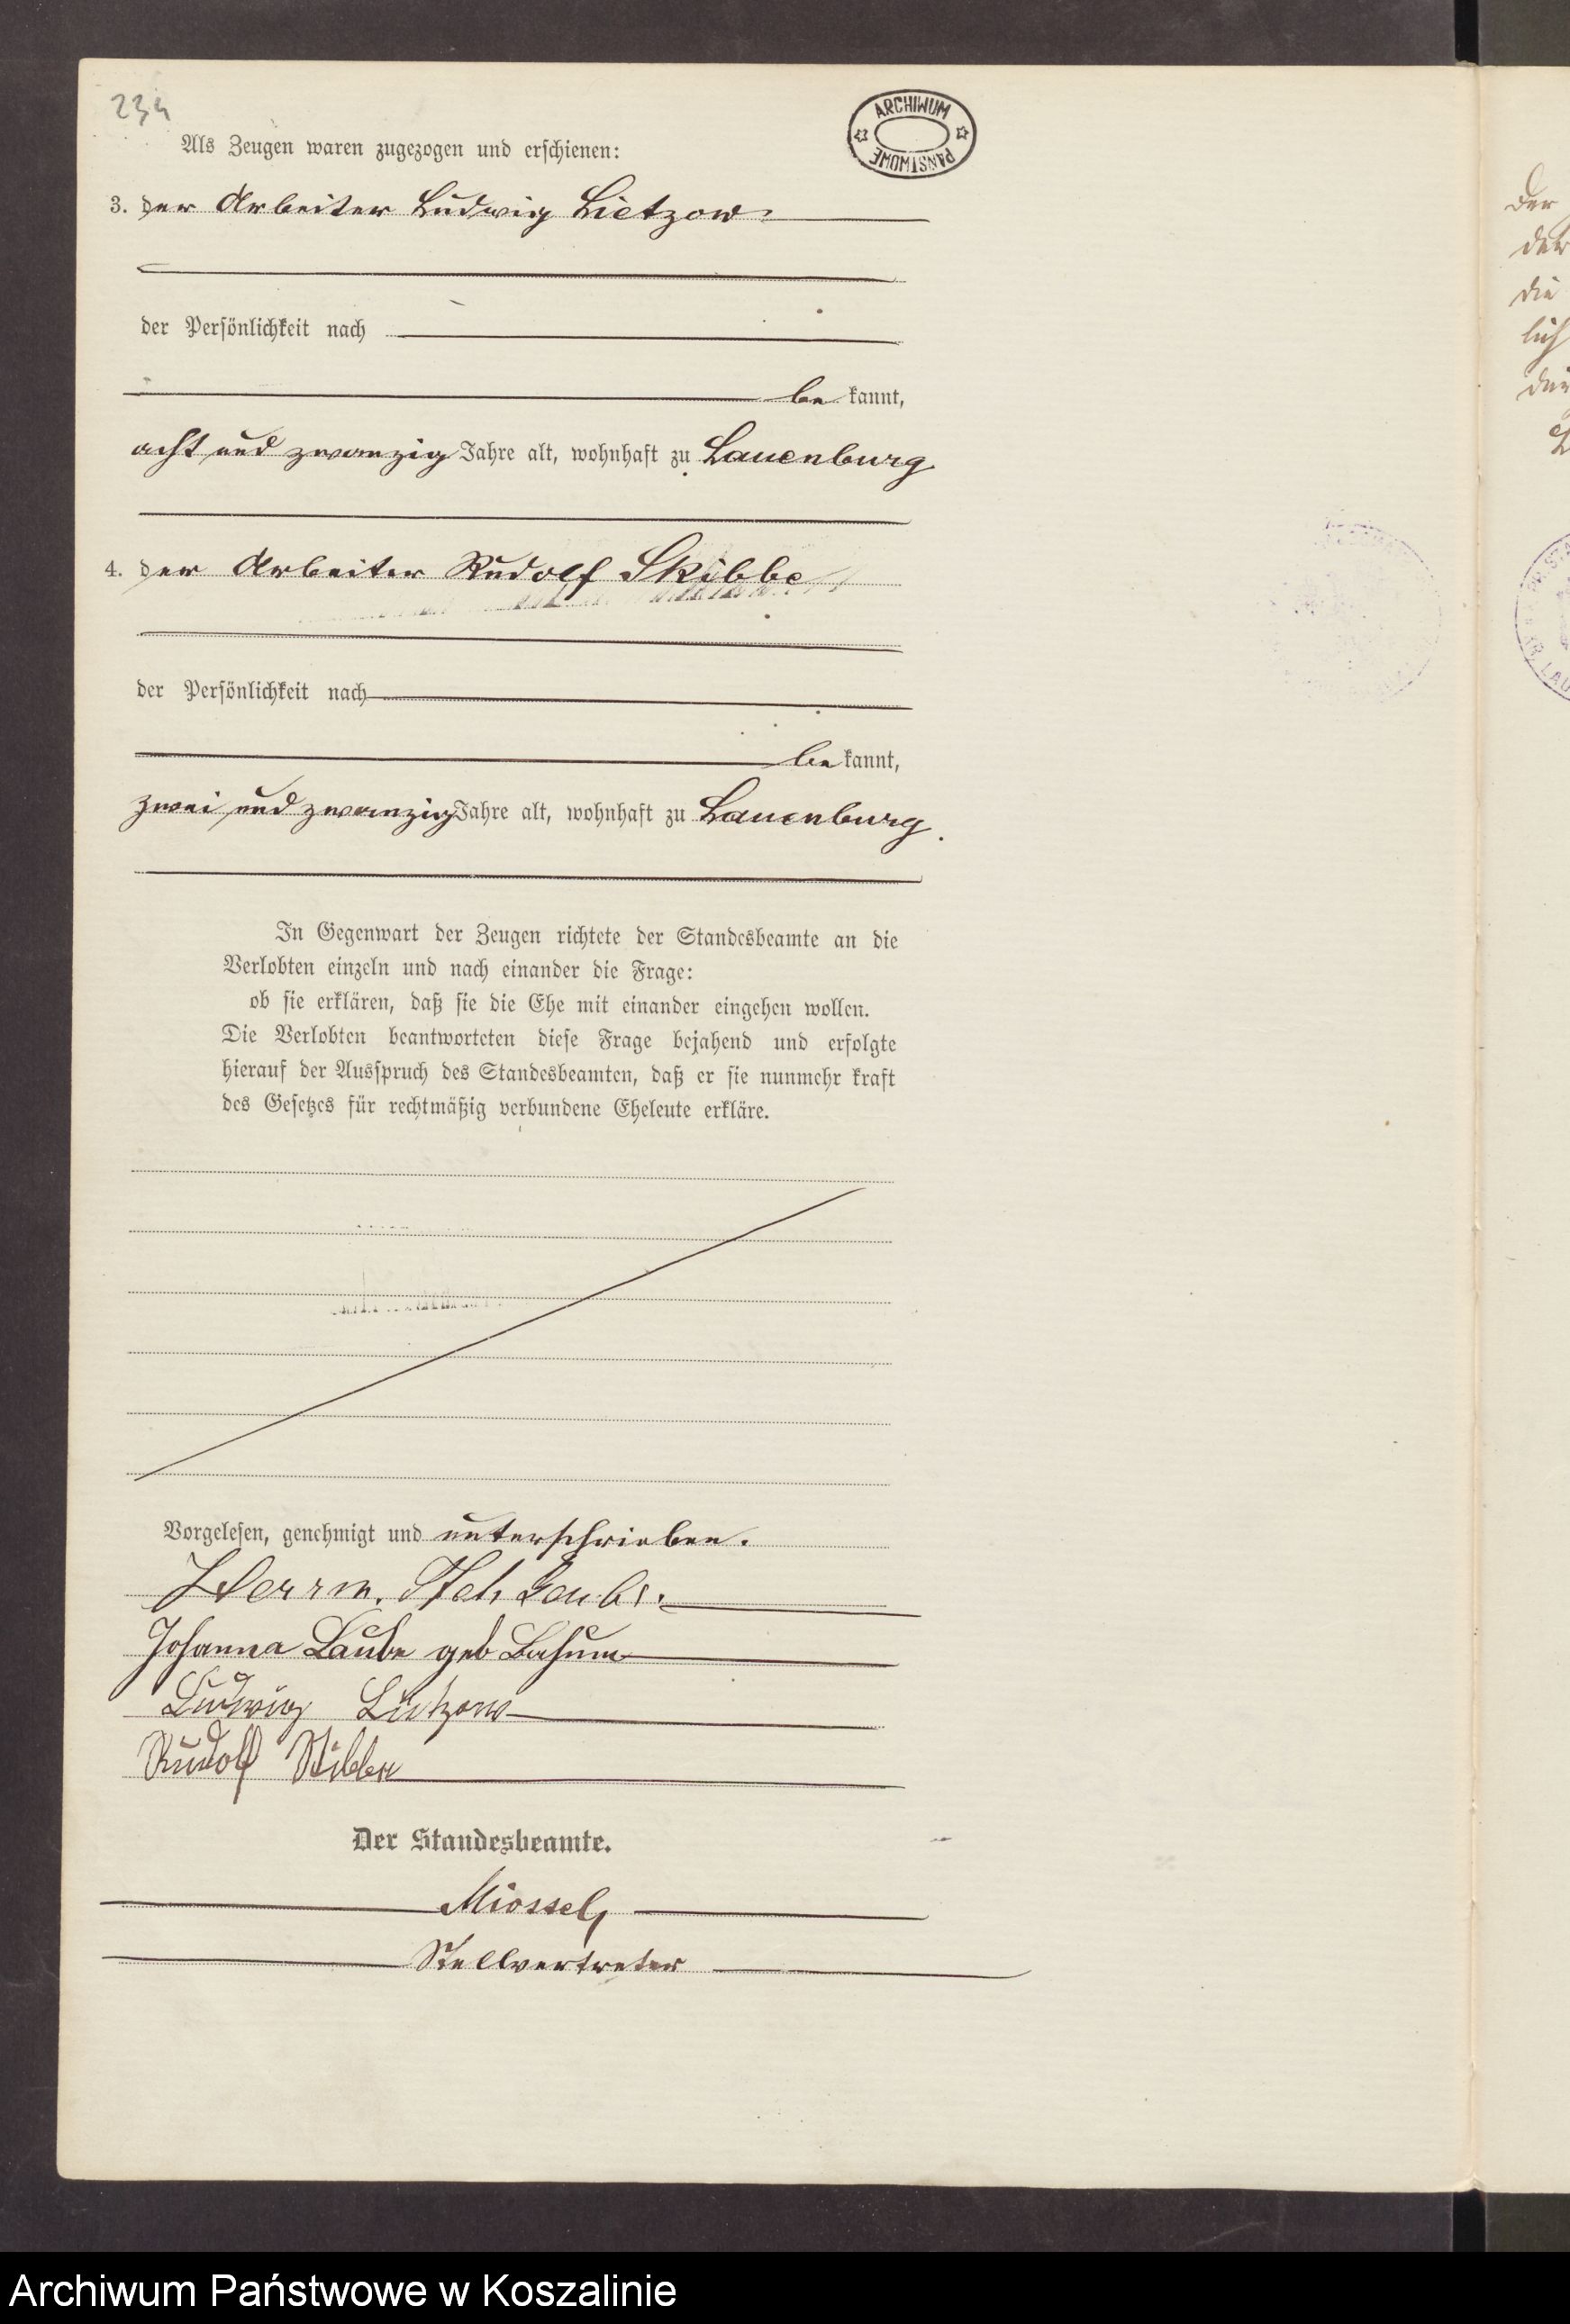 234
ARCHIWUM
PAŃSTWOWE
Als Zeugen waren zugezogen und erschienen:
3. der Arbeiter Ludwig Lietzow
der Persönlichkeit nach
be kannt,
acht und zwanzig Jahre alt, wohnhaft zu Lauenburg
4. der Arbeiter Rudolf Skibbe
der Persönlichkeit nach
be kannt,
zwei und zwanzig Jahre alt, wohnhaft zu Lauenburg.
In Gegenwart der Zeugen richtete der Standesbeamte an die
Verlobten einzeln und nach einander die Frage:
ob sie erklären, daß sie die Ehe mit einander eingehen wollen.
Die Verlobten beantworteten diese Frage bejahend und erfolgte
hierauf der Ausspruch des Standesbeamten, daß er sie nunmehr kraft
des Gesetzes für rechtmäßig verbundene Eheleute erkläre.
Vorgelesen, genehmigt und unterschrieben.
Herrm. Laube.
Johanna Laube geb
Ludwig Lietzow
Rudolf Skibbe
Der Standesbeamte.
Miossel,
Stellvertreter
der
der
die
lich
Archiwum Państwowe w Koszalinie